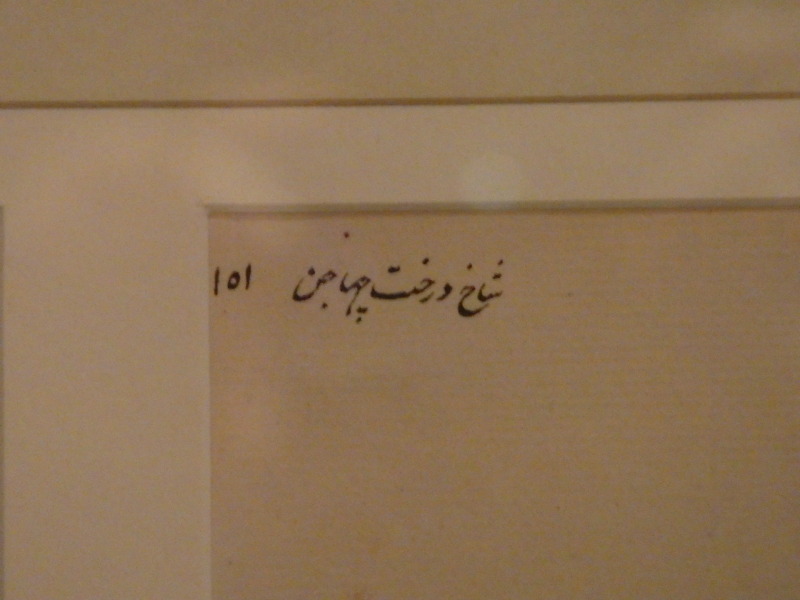 شاخ درخت چهاجن ۱۵۱